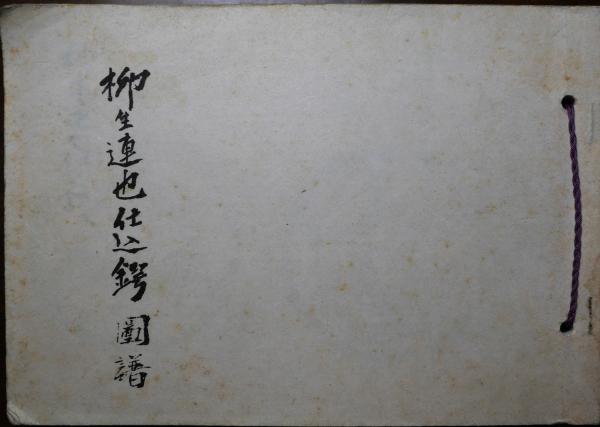 柳生連也仕込鍔 圖譜